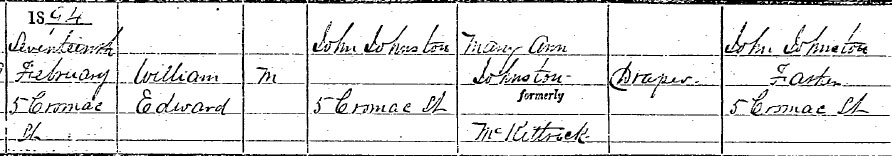 1894
Seventeenth John Johnston Mary Ann John Johnston
February William M Johnston Draper. Father
formerly
5 Cromac Edward 5 Cromac St 5 Cromac St
St McKittrick